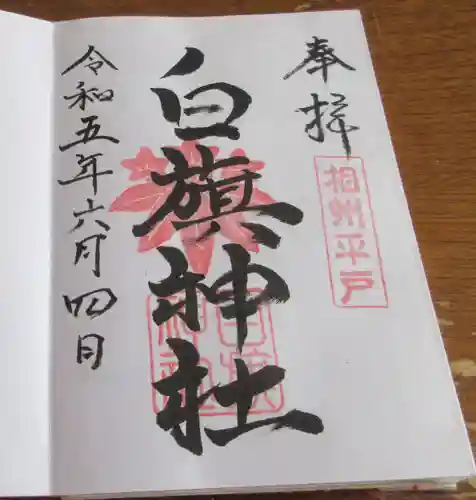 奉拝
相州平戸
白旗神社
白旗
神社
令和五年六月四日